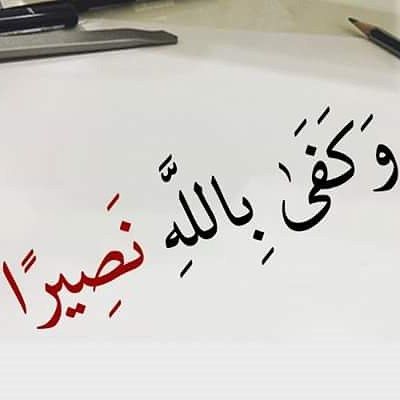 وَكَفَىٰ بِاللَّهِ نَصِيرًا